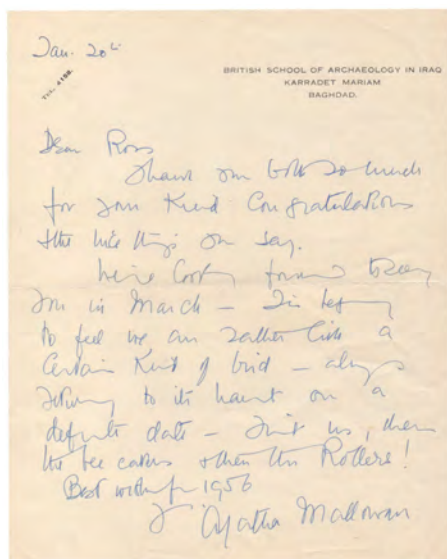 Jan. 20th
TEL. 4158.
BRITISH SCHOOL OF ARCHAEOLOGY IN IRAQ
KARRADET MARIAM
BAGHDAD.
Dear Ross
Thank you both so much
for your Kind Congratulations
& the nice things you say.
We're looking forward to seeing
you in March – I'm beginning
to feel we are rather like a
Certain Kind of bird – always
returning to its haunt on a
definite date – First us, then
the bee eaters & then the Rollers!
Best wishes for 1956
Agatha Mallowan